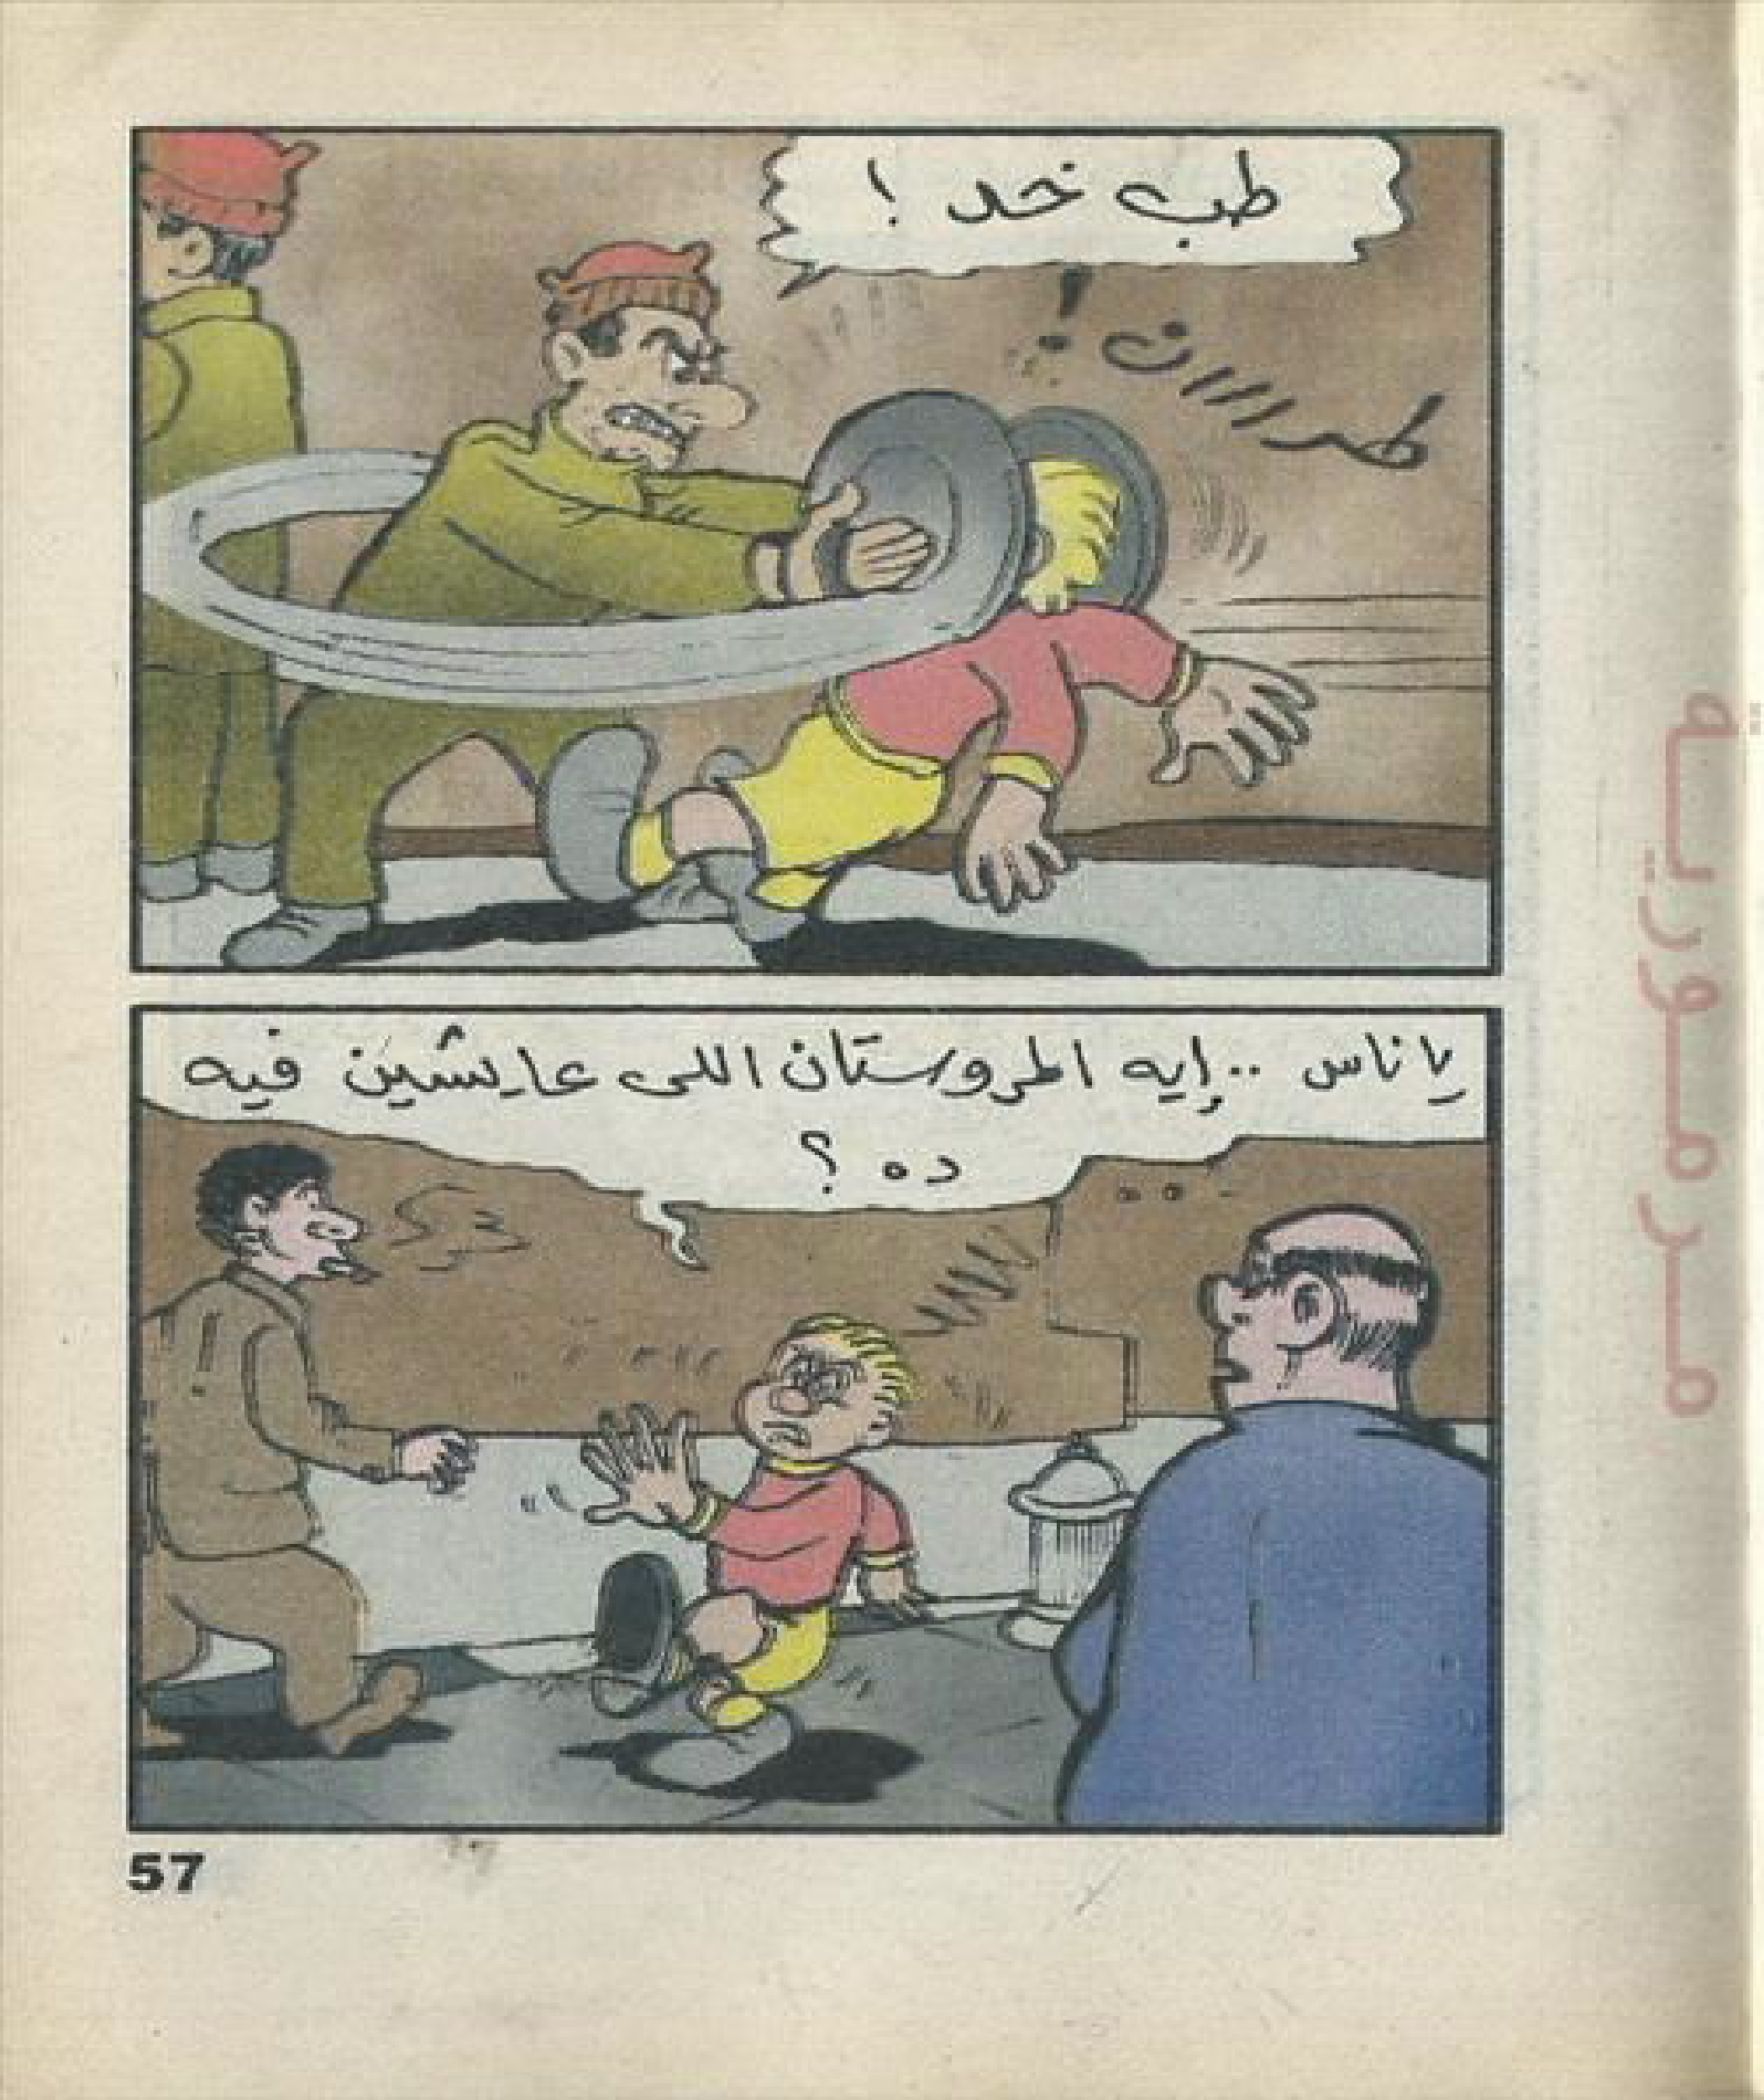 طب خد !
طراااان !
يا ناس .. إيه المروستان اللى عايشين فيه
ده ؟
57